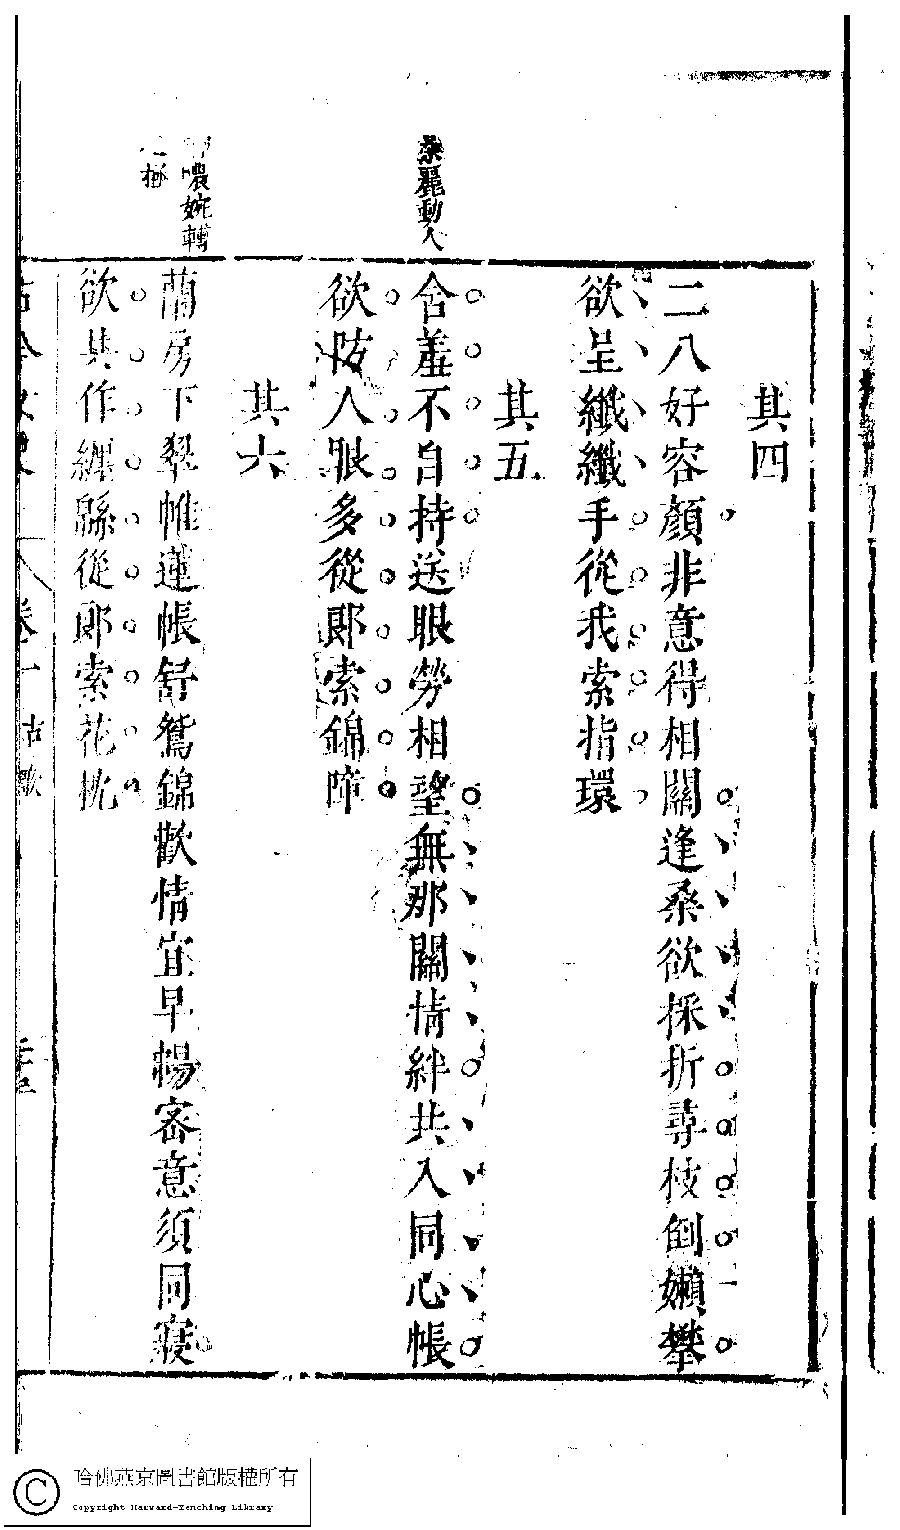 其四
二八好容顏非意得相關逢桑欲採折尋枝倒嬾攀
欲呈纖纖手從我索指環
其五
柔麗動人
含羞不自持送眼勞相望無那關情絆共入同心帳
欲防人眼多從郎索錦障
其六
婉轉
極
蘭房下翠帷蓮帳舒鴛錦歡情宜早暢密意須同寢
欲共作纏綿從郎索花枕
卷十 古歌
哈佛燕京圖書館版權所有
Copyright Harvard-Yenching Library